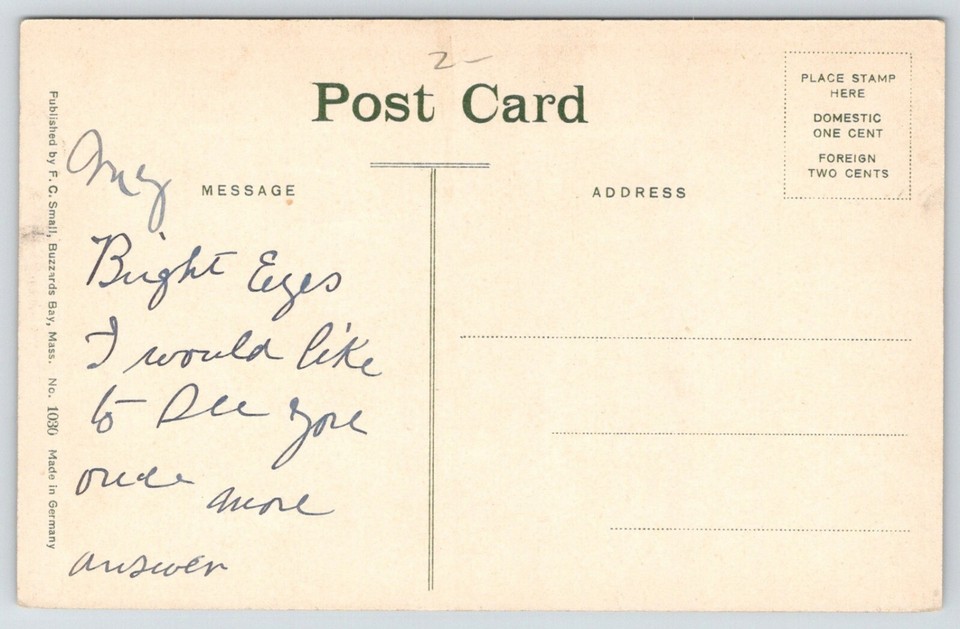 2-
Post Card
PLACE STAMP
HERE
DOMESTIC
ONE CENT
FOREIGN
TWO CENTS
MESSAGE
ADDRESS
My
Bright Eyes
I would like
to See you
once more
answer
Published by F. C. Small, Buzzards Bay, Mass. No. 1030 Made in Germany